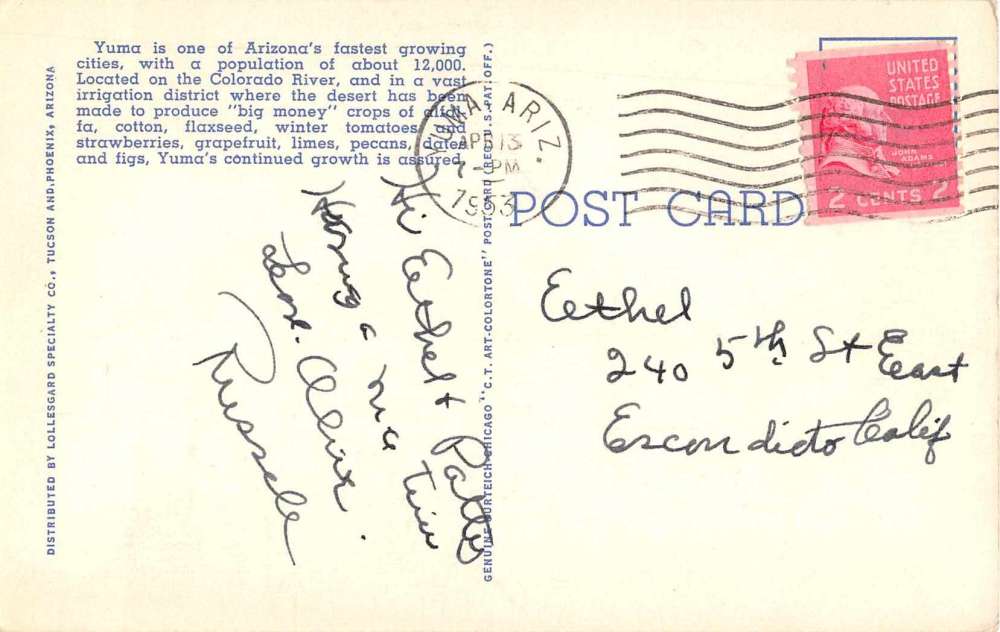 Yuma is one of Arizona's fastest growing
cities, with a population of about 12,000.
Located on the Colorado River, and in a vast
irrigation district where the desert has been
made to produce "big money" crops of alfal-
fa, cotton, flaxseed, winter tomatoes and
strawberries, grapefruit, limes, pecans, dates
and figs, Yuma's continued growth is assured.
DISTRIBUTED BY LOLLESGARD SPECIALTY CO., TUCSON AND PHOENIX, ARIZONA
GENUINE CURTEICH-CHICAGO "C.T. ART-COLORTONE" POST CARD (REG. U.S. PAT. OFF.)
YUMA, ARIZ.
APR 13
7-PM
1953
UNITED
STATES
POSTAGE
JOHN
ADAMS
2 CENTS 2
POST CARD
Hi Eethel + Patty
Having a nice time
Love. Alice.
Russell
Eethel
240 5th St East
Escondido Calif